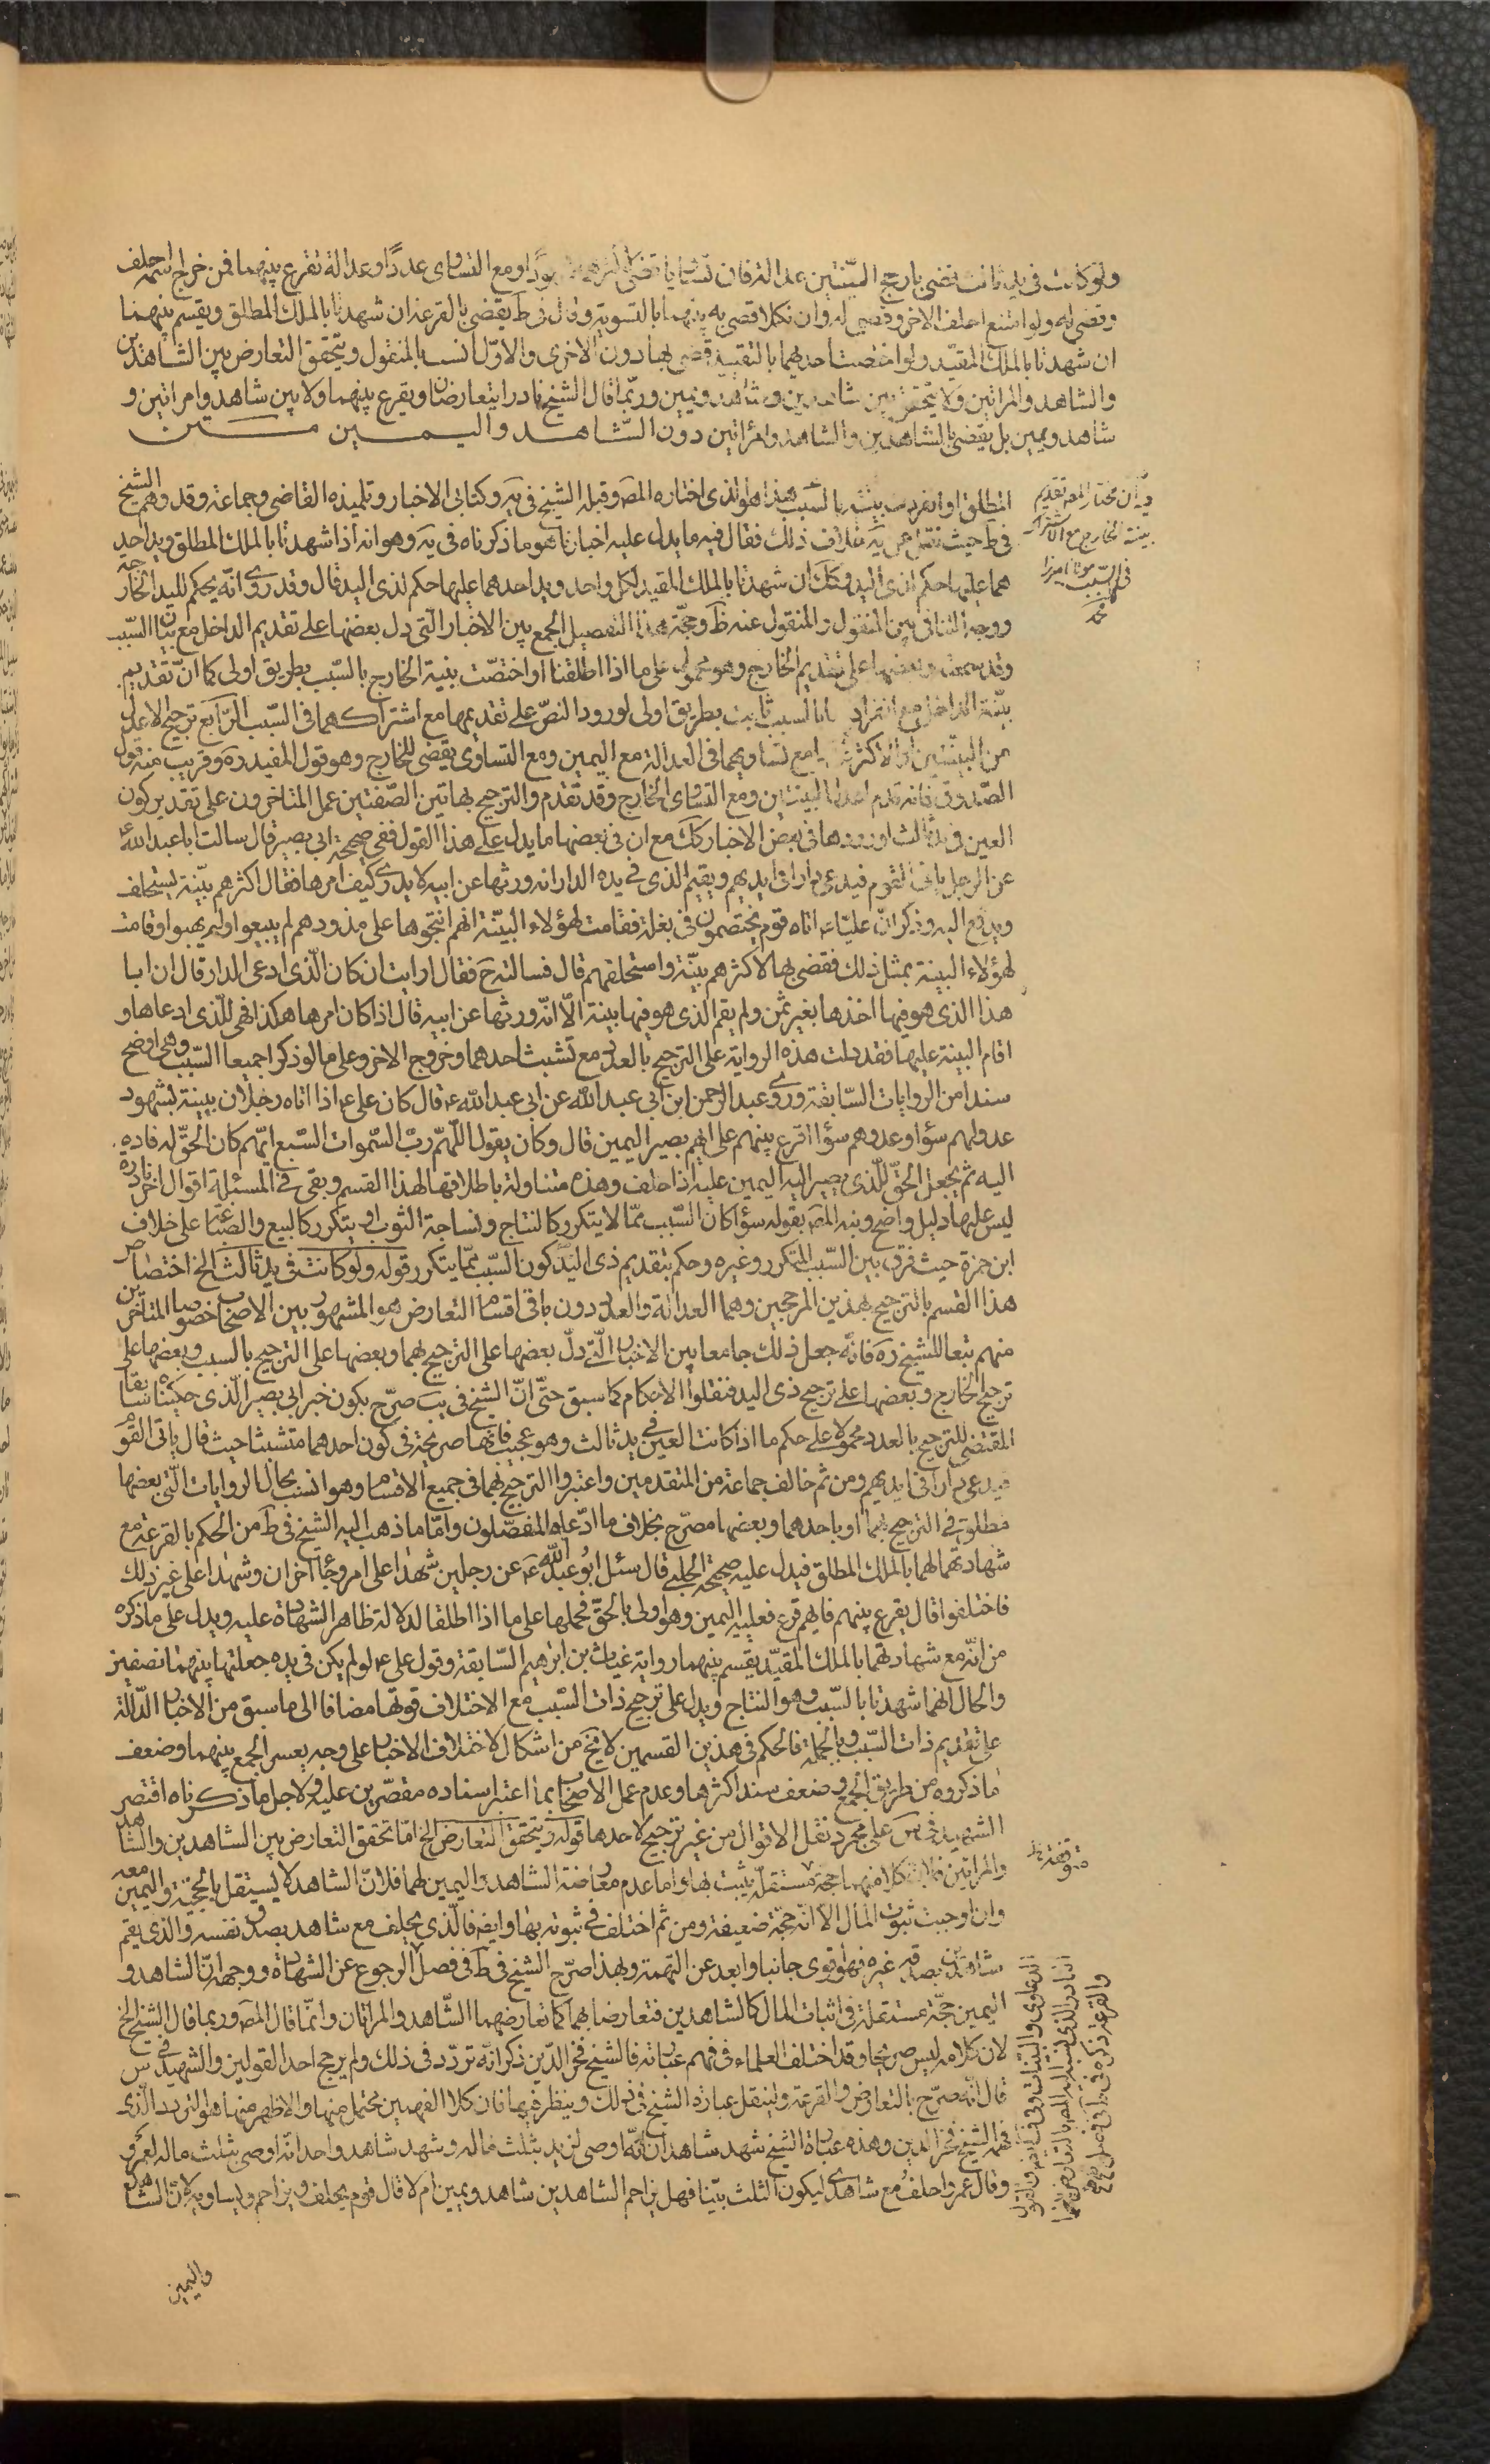 ولو كانت فى يد ثالث قضى بارجح البينتين عدالة فان تساويا قضى لاكثرهما شهودا ومع التساوى عددا وعدالة تقرع بينهما فمن خرج اسمه حلف
وقضى له ولو امتنع احلف الاخر وقضى له وان نكلا قضى به بينهما بالتسوية وقال فى ط يقضى بالقرعة ان شهدتا بالملك المطلق ويقسم بينهما
ان شهدتا بالملك المقيد ولو اختصت احديهما بالتقييد قضى بها دون الاخرى والاول انسب بالمنقول ويتحقق التعارض بين الشاهدين
والشاهد والمراتين ولا يتحقق بين شاهدين وشاهد ويمين وربما قال الشيخ نادرا يتعارضان ويقرع بينهما ولا بين شاهد وامراتين و
شاهد ويمين بل يقضى بالشاهدين والشاهد والمراتين دون الشاهد واليمين
المطلق او انفردت بينته بالسبب هذا هو الذى اختاره المصـ وقبله الشيخ فى يه وكتابى الاخبار وتلميذه القاضى وجماعة وقد وهم الشيخ
فى ط حيث نقل عن يه خلاف ذلك فقال فيه ما يدل عليه اخبارنا هو ما ذكرناه فى يه وهو انه اذا شهدتا بالملك المطلق ويد احد
هما عليها حكم لذى اليد وكك ان شهدتا بالملك المقيد لكل واحد ويد احدهما عليها حكم لذى اليد قال وقد روى انه يحكم لليد الخارجة
ووجه التنافى بين المنقول والمنقول عنه ظ وحجة هذا التفصيل الجمع بين الاخبار التى دل بعضها على تقديم الداخل مع بيان السبب
وقد سمعته وبعضها على تقديم الخارج وهو محمول على ما اذا اطلقتا او اختصت بينة الخارج بالسبب بطريق اولى كما ان تقديم
بينة الداخل مع انفرادها بالسبب ثابت بطريق اولى لورود النص على تقديمها مع اشتراكهما فى السبب الرابع ترجيح الاعدل
من البينتين او الاكثر مع تساويهما فى العدالة مع اليمين ومع التساوى يقضى للخارج وهو قول المفيد ره وقريب منه قول
الصدوق فانه قدم اعدل البينتين ومع التساوى الخارج وقد تقدم والترجيح بهاتين الصفتين عمل المتاخرون على تقدير كون
العين فى يد ثالث او ورودها فى بعض الاخبار كك مع ان فى بعضها ما يدل على هذا القول ففى صحيحة ابى بصير قال سالت ابا عبد الله ع
عن الرجل ياتى القوم فيدعى دارا فى ايديهم ويقيم الذى فى يده الدار انه ورثها عن ابيه لا يدرى كيف امرها فقال اكثرهم بينة يستحلف
ويدفع اليه وذكر ان عليا ع اتاه قوم يختصمون فى بغلة فقامت لهؤلاء البينة انهم انتجوها على مذودهم لم يبيعوا ولم يهبوا وقامت
لهؤلاء البينة بمثل ذلك فقضى بها لاكثرهم بينة واستحلفهم قال فسالته ح فقال ارايت ان كان الذى ادعى الدار قال ان ابا
هذا الذى هو فيها اخذها بغير ثمن ولم يقم الذى هو فيها بينة الا انه ورثها عن ابيه قال اذا كان امرها هكذا فهى للذى ادعاها و
اقام البينة عليها فقد دلت هذه الرواية على الترجيح بالعدد مع تشبث احدهما وخروج الاخر وعلى ما لو ذكرا جميعا السبب وهى اوضح
سندا من الروايات السابقة وروى عبد الرحمن ابن ابى عبد الله عن ابى عبد الله ع قال كان على ع اذا اتاه رجلان ببينة بشهود
عدولهم سؤا وعددهم سؤا اقرع بينهم على ايهم يصير اليمين قال وكان يقول اللهم رب السموات السبع ايهم كان الحق له فاده
اليه ثم يجعل الحق للذى يصير اليه اليمين عليه اذا حلف وهذه متناولة باطلاقها لهذا القسم وبقى فى المسئلة اقوال اخر نادرة
ليس عليها دليل واضح ونبه المصـ بقوله سؤا كان السبب مما لا يتكرر كالنتاج ونساجة الثوب او يتكرر كالبيع والصياغة على خلاف
ابن حمزة حيث فرق بين السبب المتكرر وغيره وحكم بتقديم ذى اليد كون السبب مما يتكرر قوله ولو كانت فى يد ثالث الخ اختصاص
هذا القسم بالترجيح بهذين المرجحين وهما العدالة والعدد دون باقى اقسام التعارض هو المشهور بين الاصحاب خصوصا المتاخرين
منهم تبعا للشيخ ره فانه جعل ذلك جامعا بين الاخبار التى دل بعضها على الترجيح بهما وبعضها على الترجيح بالسبب وبعضها على
ترجيح الخارج وبعضها على ترجيح ذى اليد فنقلوا الاحكام كما سبق حتى ان الشيخ فى يب صرح بكون خبر ابى بصير الذى حكيناه سابقا
المقتضى للترجيح بالعدد محمولا على حكم ما اذا كانت العين فى يد ثالث وهو عجيب فانها صريحة فى كون احدهما متشبثا حيث قال ياتى القوم
فيدعى دارا فى ايديهم ومن ثم خالف جماعة من المتقدمين واعتبروا الترجيح بهما فى جميع الاقسام وهو انسب بحال الروايات التى بعضها
مطلق فى الترجيح بهما او باحدهما وبعضها مصرح بخلاف ما ادعاه المفصلون واما ما ذهب اليه الشيخ فى ط من الحكم بالقرعة مع
شهادتهما لهما بالملك المطلق فيدل عليه صحيحة الحلبى قال سئل ابو عبد الله ع عن رجلين شهدا على امر وجاء اخران وشهدا على غير ذلك
فاختلفوا قال يقرع بينهم فايهم قرع فعليه اليمين وهو اولى بالحق فحملها على ما اذا اطلقا لدلالة ظاهر الشهادة عليه ويدل على ما ذكره
من انه مع شهادتهما بالملك المقيد يقسم بينهما رواية غياث بن ابرهيم السابقة وقول على ع لو لم يكن فى يده جعلتها بينهما نصفين
والحال انهما شهدتا بالسبب وهو النتاج ويدل على ترجيح ذات السبب مع الاختلاف قوتها مضافا الى ما سبق من الاخبار الدالة
على تقديم ذات السبب وبالجملة فالحكم فى هذين القسمين لا يخ من اشكال لاختلاف الاخبار على وجه يعسر الجمع بينهما وضعف
ما ذكروه من طريق الجمع وضعف سند اكثرها وعدم عمل الاصحاب بما اعتبر اسناده مقصرين عليه ولاجل ما ذكرناه اقتصر
الشهيد فى س على مجرد نقل الاقوال من غير ترجيح لاحدها قوله ويتحقق التعارض الخ اما تحقق التعارض بين الشاهدين والشاهد
والمراتين فلان كلا منهما حجة مستقلة يثبت بها واما عدم معارضة الشاهد واليمين لهما فلان الشاهد لا يستقل بالحجية واليمين معه
وان اوجبت ثبوت المال الا انه حجة ضعيفة ومن ثم اختلف فى ثبوته بها وايضا فالذى يحلف مع شاهد يصدق نفسه والذى يقيم
شاهدين يصدقه غيره فهو اقوى جانبا وابعد عن التهمة وبهذا صرح الشيخ فى ط فى فصل الرجوع عن الشهادة ووجه ان الشاهد و
اليمين حجة مستقلة فى اثبات المال كالشاهدين فتعارضا بهما كما تعارضهما الشاهد والمراتان وانما قال المصـ وربما قال الشيخ الخ
لان كلامه ليس صريحا وقد اختلف العلماء فى فهم عبارته فالشيخ فخر الدين ذكر انه تردد فى ذلك ولم يرجح احد القولين والشهيد فى س
قال انه صرح بالتعارض والقرعة ولينقل عبارة الشيخ فى ذلك وينظر فيها فان كلا الفهمين محتمل منها والاظهر منها هو التردد الذى
فهمه الشيخ فخر الدين وهذه عبارة الشيخ شهد شاهدان انه اوصى لزيد بثلث ماله وشهد شاهد واحد انه اوصى بثلث ماله لعمرو
وقال عمرو احلف مع شاهدى ليكون الثلث بيننا فهل يزاحم الشاهدين شاهد ويمين ام لا قال قوم يحلف ويزاحم ويساويه لان الشاهد
واليمين